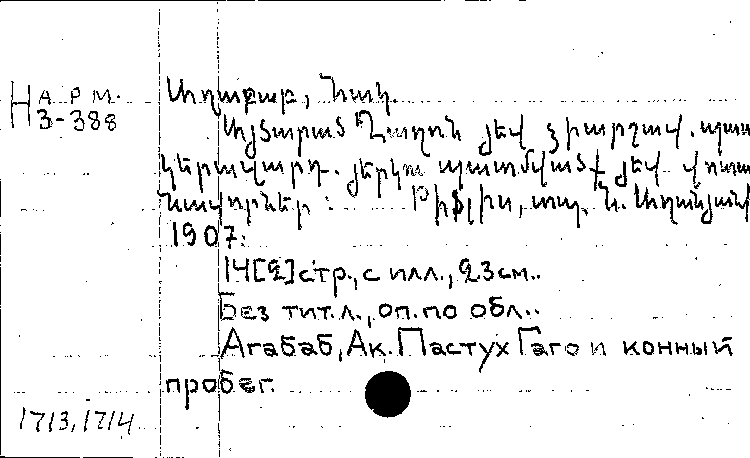 Н АРМ.
3-388
Աղաբաբ, Հակ.
Այծարած Ղաղոն չեվ ձիարշավ. պատ
կերավարդ. չերկու պատմված
նավորներ: Թիֆլիս, տպ. Ն. Աղանյանի
1907:
14[2]стр., с илл., 23см..
Без тит.л., оп. по обл..
Агабаб, Ак. Пастух Гаго и конный
пробег.
1713, 1714